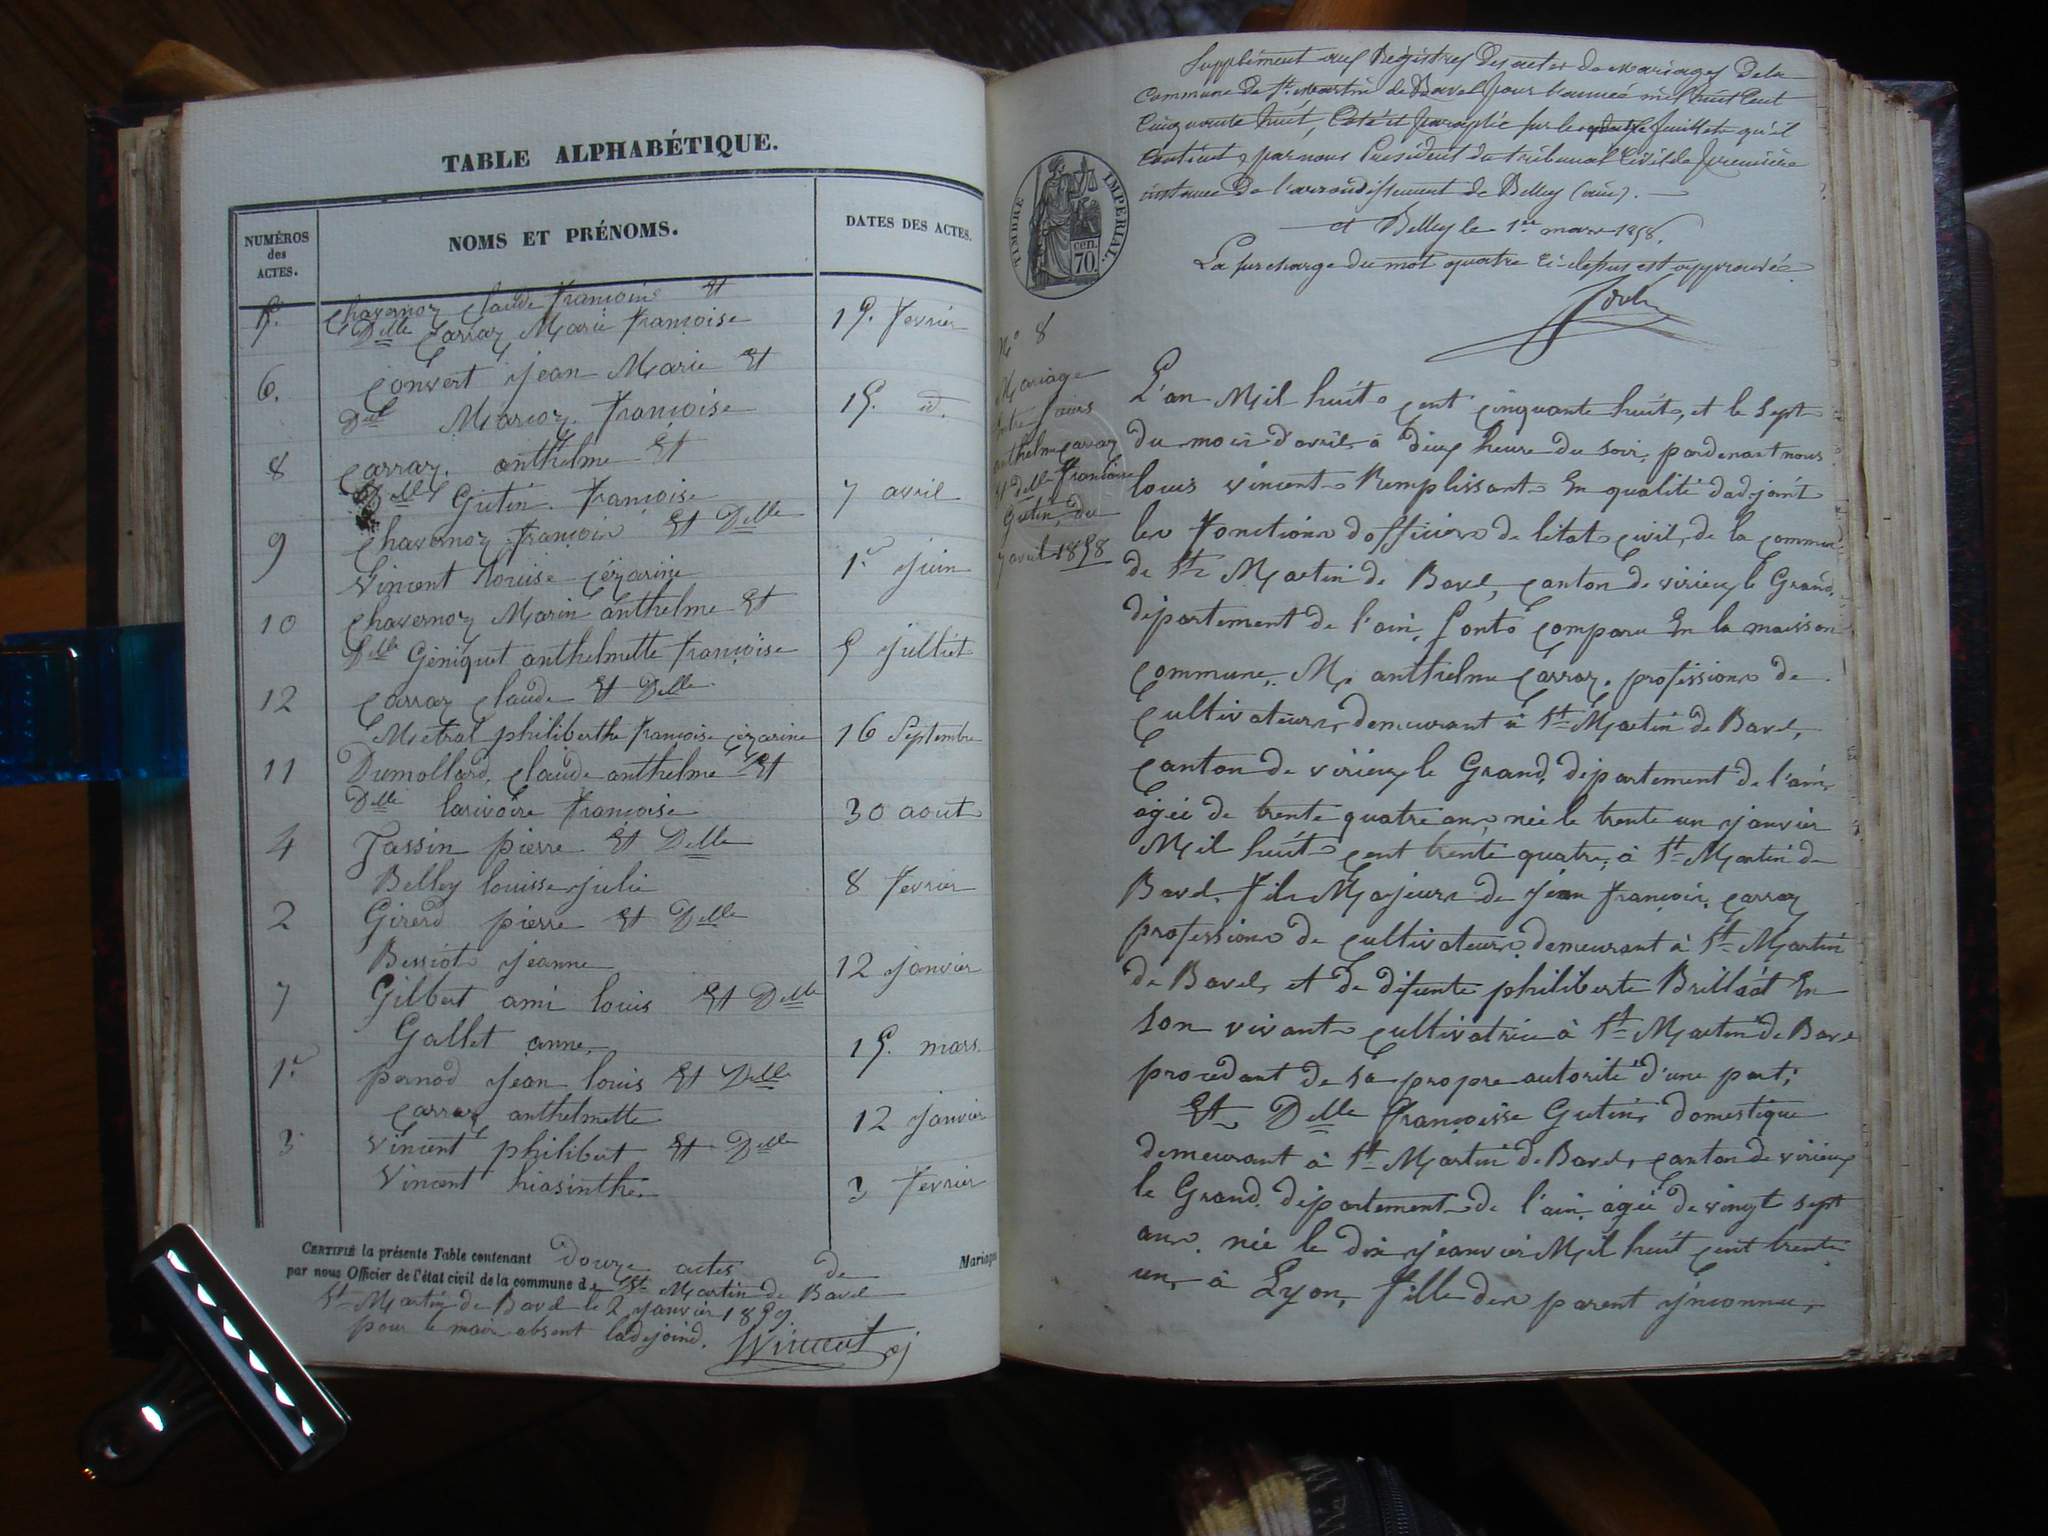 TABLE ALPHABÉTIQUE.
NUMÉROS des ACTES.
NOMS ET PRÉNOMS.
DATES DES ACTES.
5. Chavernoz Claude françoise Et
Delle Carraz Marie françoise 19. fevrier
6. Convert jean Marie Et
Delle Marcoz françoise 15. id.
8 Carraz. anthelme Et
Delle Gutin. françoise 7 avril
9 Chavernoz françois Et Delle
Vincent Louise Cézarine 1er juin
10 Chavernoz Marin anthelme Et
Delle Géniquet anthelmette françoise 5 julliet
12 Carraz Claude Et Delle
Métral philiberthe françoise Cézarine 16 Septembre
11 Dumollard, Claude anthelme Et
Delle larivoire françoise 30 aout
4 Jassin pierre Et Delle
Belley louisse julie 8 fevrier
2 Girerd pierre Et Delle
Bessiot jeanne 12 janvier
7 Gilbert ami louis Et Delle
Gallet anne. 15. mars.
1er pernod jean louis Et Delle
Carraz anthelmette 12 janvier
3 Vincent philibert Et Delle
Vincent hiasinthe. 3 fevrier
CERTIFIÉ la présente Table contenant Douze actes de Mariages
par nous Officier de l'état civil de la commune de St Martin de Bavel
St Martin de Bavel le 2 janvier 1859.
pour le maire absent ladejoind. Vincent adj
Supplément aux Régistres des actes de mariages de la
Commune de St Martin de Bavel pour l'année mil huit Cent
Cinquante huit, Coté et paraphé sur le quatre feuillets qu'il
Contient, par nous Président du tribunal Civil de première
instance de l'arrondissement de Belley (ain).
à Belley le 1er mars 1858.
La surcharge du mot quatre Ci-dessus est approuvée
TIMBRE IMPERIAL.
cen.
70.
No 8
Mariage
Entre Sieurs
anthelme Carraz
Et Delle françoise
Gutin, du
7 avril 1858
L'an Mil huit Cent Cinquante huit, et le Sept
du mois d'avril à deux heure du soir, pardenant nous
louis vincent Remplissant En qualité dadjoint
les fonctions dofficier de létat Civil, de la Commune
de St Martin de Bavel, Canton de virieux le Grand,
département de l'ain, Sont Comparu En la maison
Commune, M. anthelme Carraz. profession de
Cultivateur, demeurant à St Martin de Bavel,
Canton de virieux le Grand, département de l'ain,
agée de trente quatre ans, née le trente un janvier
Mil huit Cent trente quatre, à St Martin de
Bavel, fils Majeur de jean françois, Carraz
profession de Cultivateur, demeurant à St Martin
de Bavel, et de défunte philiberte Brillat En
son vivant Cultivatrice à St Martin de Bavel
procédant de sa propre autorité d'une part;
Et Delle françoisse Gutin, domestique
demeurant à St Martin de Bavel, Canton de virieux
le Grand, département de l'ain, agée de vingt sept
ans, née le dix jeanvier Mil huit Cent trente
un, à Lyon, fille des parent jnconnu,